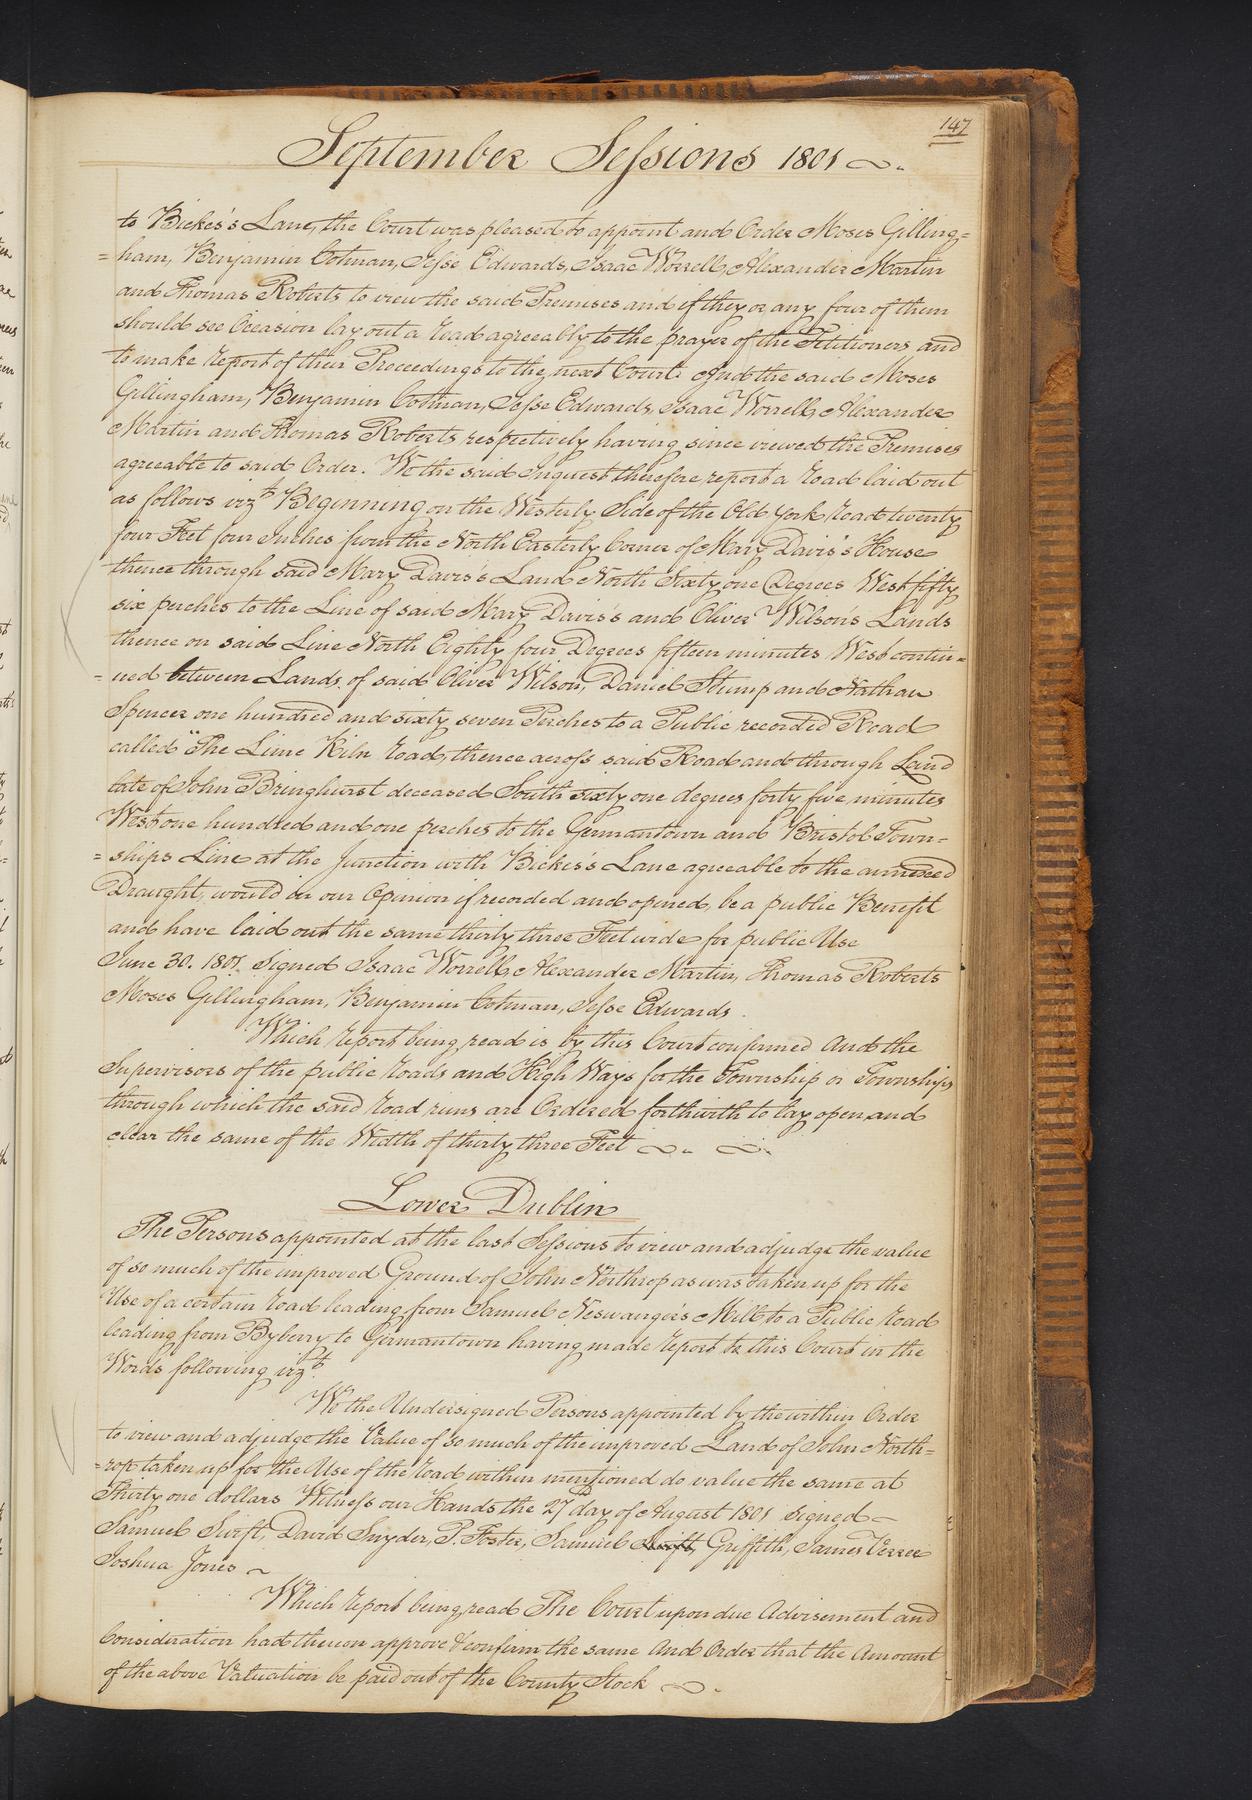 147
September Sessions 1801
to Bickes's Lane, the Court was pleased to appoint and Order Moses Gilling=
=ham, Benjamin Cotman, Jesse Edwards, Isaac Worrell, Alexander Martin
and Thomas Roberts to view the said Premises and if they or any four of them
should see Occasion lay out a road agreeably to the prayer of the Petitioners and
to make report of their Proceedings to the next Court. And the said Moses
Gillingham, Benjamin Cotman, Jesse Edwards, Isaac Worrell, Alexander
Martin and Thomas Roberts respectively having since viewed the Premises
agreeable to said Order. We the said Inquest therefore report a road laid out
as follows vizt. Beginning on the Westerly Side of the Old York road twenty
four Feet four Inches from the North Easterly Corner of Mary Davis's House
thence through said Mary Davis's Land North Sixty one Degrees West fifty
six perches to the Line of said Mary Davis's and Oliver Wilson's Lands
thence on said Line North Eighty four Degrees fifteen minutes West contin=
=ued between Lands of said Oliver Wilson, Daniel Stump and Nathan
Spencer one hundred and sixty seven Perches to a Public recorded Road
called "The Lime Kiln road, thence across said Road and through Land
late of John Bringhurst deceased South sixty one degrees forty five minutes
West one hundred and one perches to the Germantown and Bristol Town=
=ships Line at the Junction with Bickes's Lane agreeable to the annexed
Draught, would in our Opinion if recorded and opened, be a public Benefit
and have laid out the same thirty three Feet wide for public Use
June 30. 1801. Signed Isaac Worrell, Alexander Martin, Thomas Roberts
Moses Gillingham, Benjamin Cotman, Jesse Edwards.
Which report being read is by this Court confirmed And the
Supervisors of the public roads and High Ways for the Township or Townships
through which the said road runs are Ordered forthwith to lay open and
clear the same of the Width of thirty three Feet
Lower Dublin
The Persons appointed at the last Sessions to view and adjudge the value
of so much of the improved Ground of John Northrop as was taken up for the
Use of a certain road leading from Samuel Neswanger's Mill to a Public road
leading from Byberry to Germantown having made report to this Court in the
Words following vizt.
We the Undersigned Persons appointed by the within Order
to view and adjudge the Value of so much of the improved Land of John North=
=rop taken up for the Use of the road within mentioned do value the same at
Thirty one dollars Witness our Hands the 27 day of August 1801 signed
Samuel Swift, David Snyder, P. Foster, Samuel Swift, Griffith, James Verree
Joshua Jones
Which report being read The Court upon due Advisement and
Consideration had thereon approve & confirm the same And Order that the Amount
of the above Valuation be paid out of the County Stock